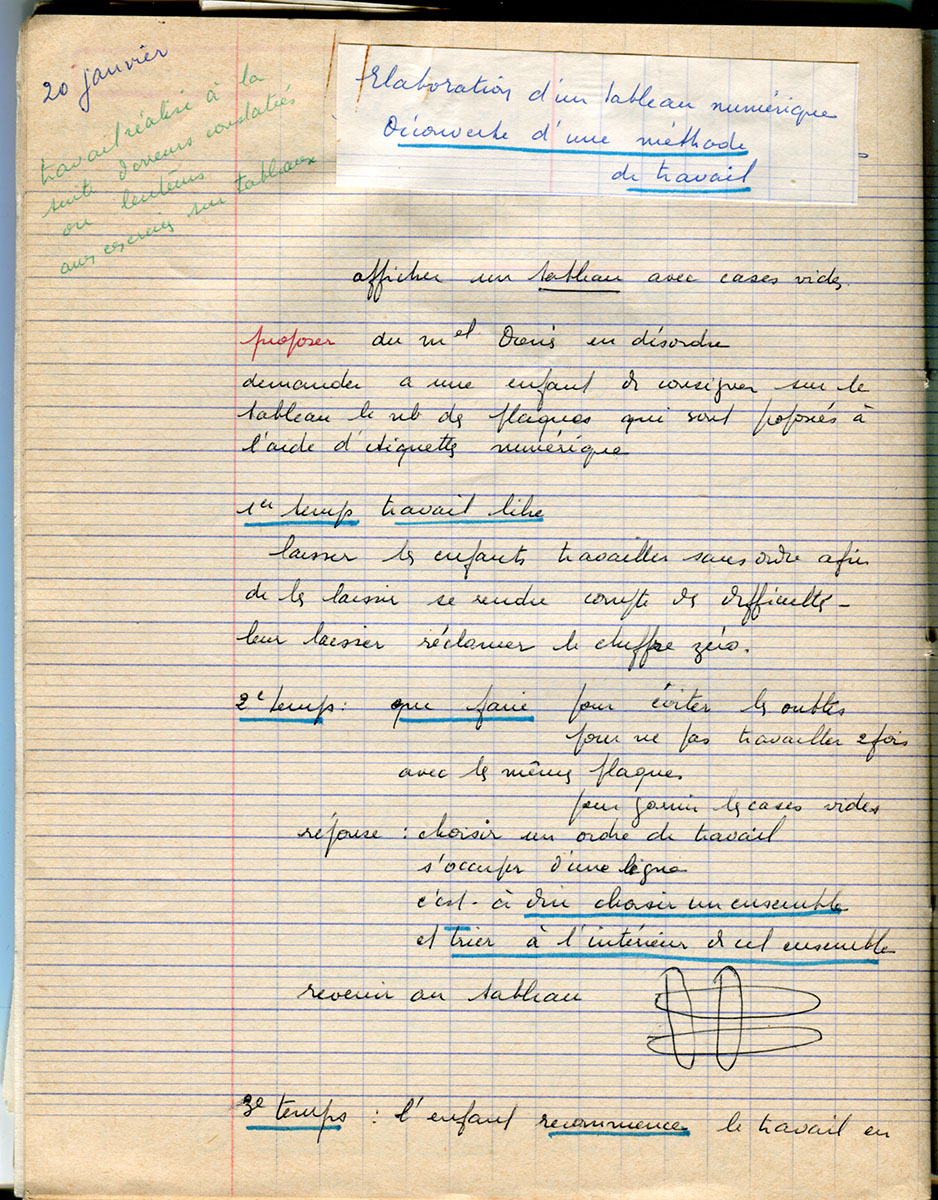 20 janvier
travail réalisé à la
suite d'erreurs constatées
ou lenteurs
aux exercices sur tableaux
Elaboration d'un tableau numérique
Découverte d'une méthode
de travail
afficher un tableau avec cases vides.
proposer du mel Diénès en désordre
demander a une enfant de consigner sur le
tableau le nb de plaques qui sont proposées à
l'aide d'étiquettes numérique
1er temps travail libre
laisser les enfants travailler sans ordre afin
de les laisser se rendre compte des difficultés -
leur laisser réclamer le chiffre zéro.
2e temps : que faire pour éviter les oublis
pour ne pas travailler 2 fois
avec les mêmes plaques
pour garnir les cases vides
réponse : choisir un ordre de travail
s'occuper d'une ligne
c'est-à dire choisir un ensemble
et trier à l'intérieur de cet ensemble
revenir au tableau
3e temps : l'enfant recommence le travail en